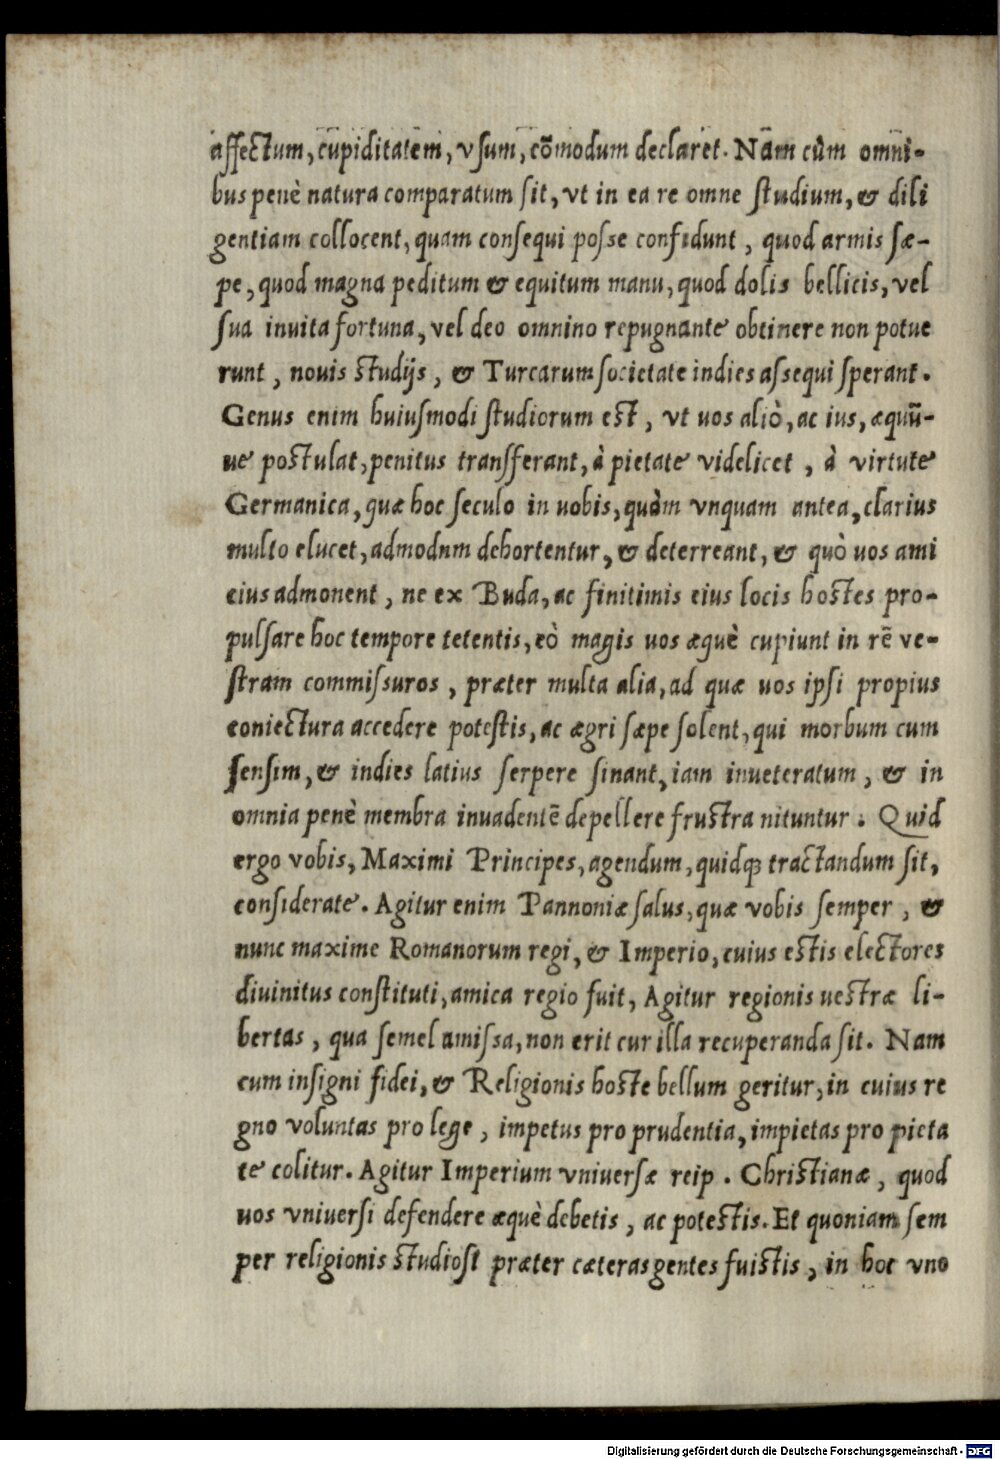 affectum, cupiditatem, vsum, cõmodum declaret. Nam cùm omni-
bus penè natura comparatum sit, vt in ea re omne studium, & dili
gentiam collocent, quam consequi posse confidunt, quod armis sæ-
pe, quod magna peditum & equitum manu, quod dolis bellicis, vel
sua inuita fortuna, vel deo omnino repugnante obtinere non potue
runt, nouis studijs, & Turcarum societate indies assequi sperant.
Genus enim huiusmodi studiorum est, vt uos aliò, ac ius, æquũ-
ue postulat, penitus transferant, à pietate videlicet, à virtute
Germanica, quæ hoc seculo in uobis, quàm vnquam antea, clarius
multo elucet, admodnm dehortentur, & deterreant, & quò uos ami
cius admonent, ne ex Buda, ac finitimis eius locis hostes pro-
pulsare hoc tempore tetentis, eò magis uos æquè cupiunt in rẽ ve-
stram commissuros, præter multa alia, ad quæ uos ipsi propius
coniectura accedere potestis, ac ægri sæpe solent, qui morbum cum
sensim, & indies latius serpere sinant, iam inueteratum, & in
omnia penè membra inuadentẽ depellere frustra nituntur. Quid
ergo vobis, Maximi Principes, agendum, quidq́; tractandum sit,
considerate. Agitur enim Pannoniæ salus, quæ vobis semper, &
nunc maxime Romanorum regi, & Imperio, cuius estis electores
diuinitus constituti, amica regio fuit, Agitur regionis uestræ li-
bertas, qua semel amissa, non erit cur illa recuperanda sit. Nam
cum insigni fidei, & Religionis hoste bellum geritur, in cuius re
gno voluntas pro lege, impetus pro prudentia, impietas pro pieta
te colitur. Agitur Imperium vniuersæ reip. Christianæ, quod
uos vniuersi defendere æquè debetis, ac potestis. Et quoniam sem
per religionis studiosi præter cæteras gentes fuistis, in hoc vno
Digitalisierung gefördert durch die Deutsche Forschungsgemeinschaft - DFG